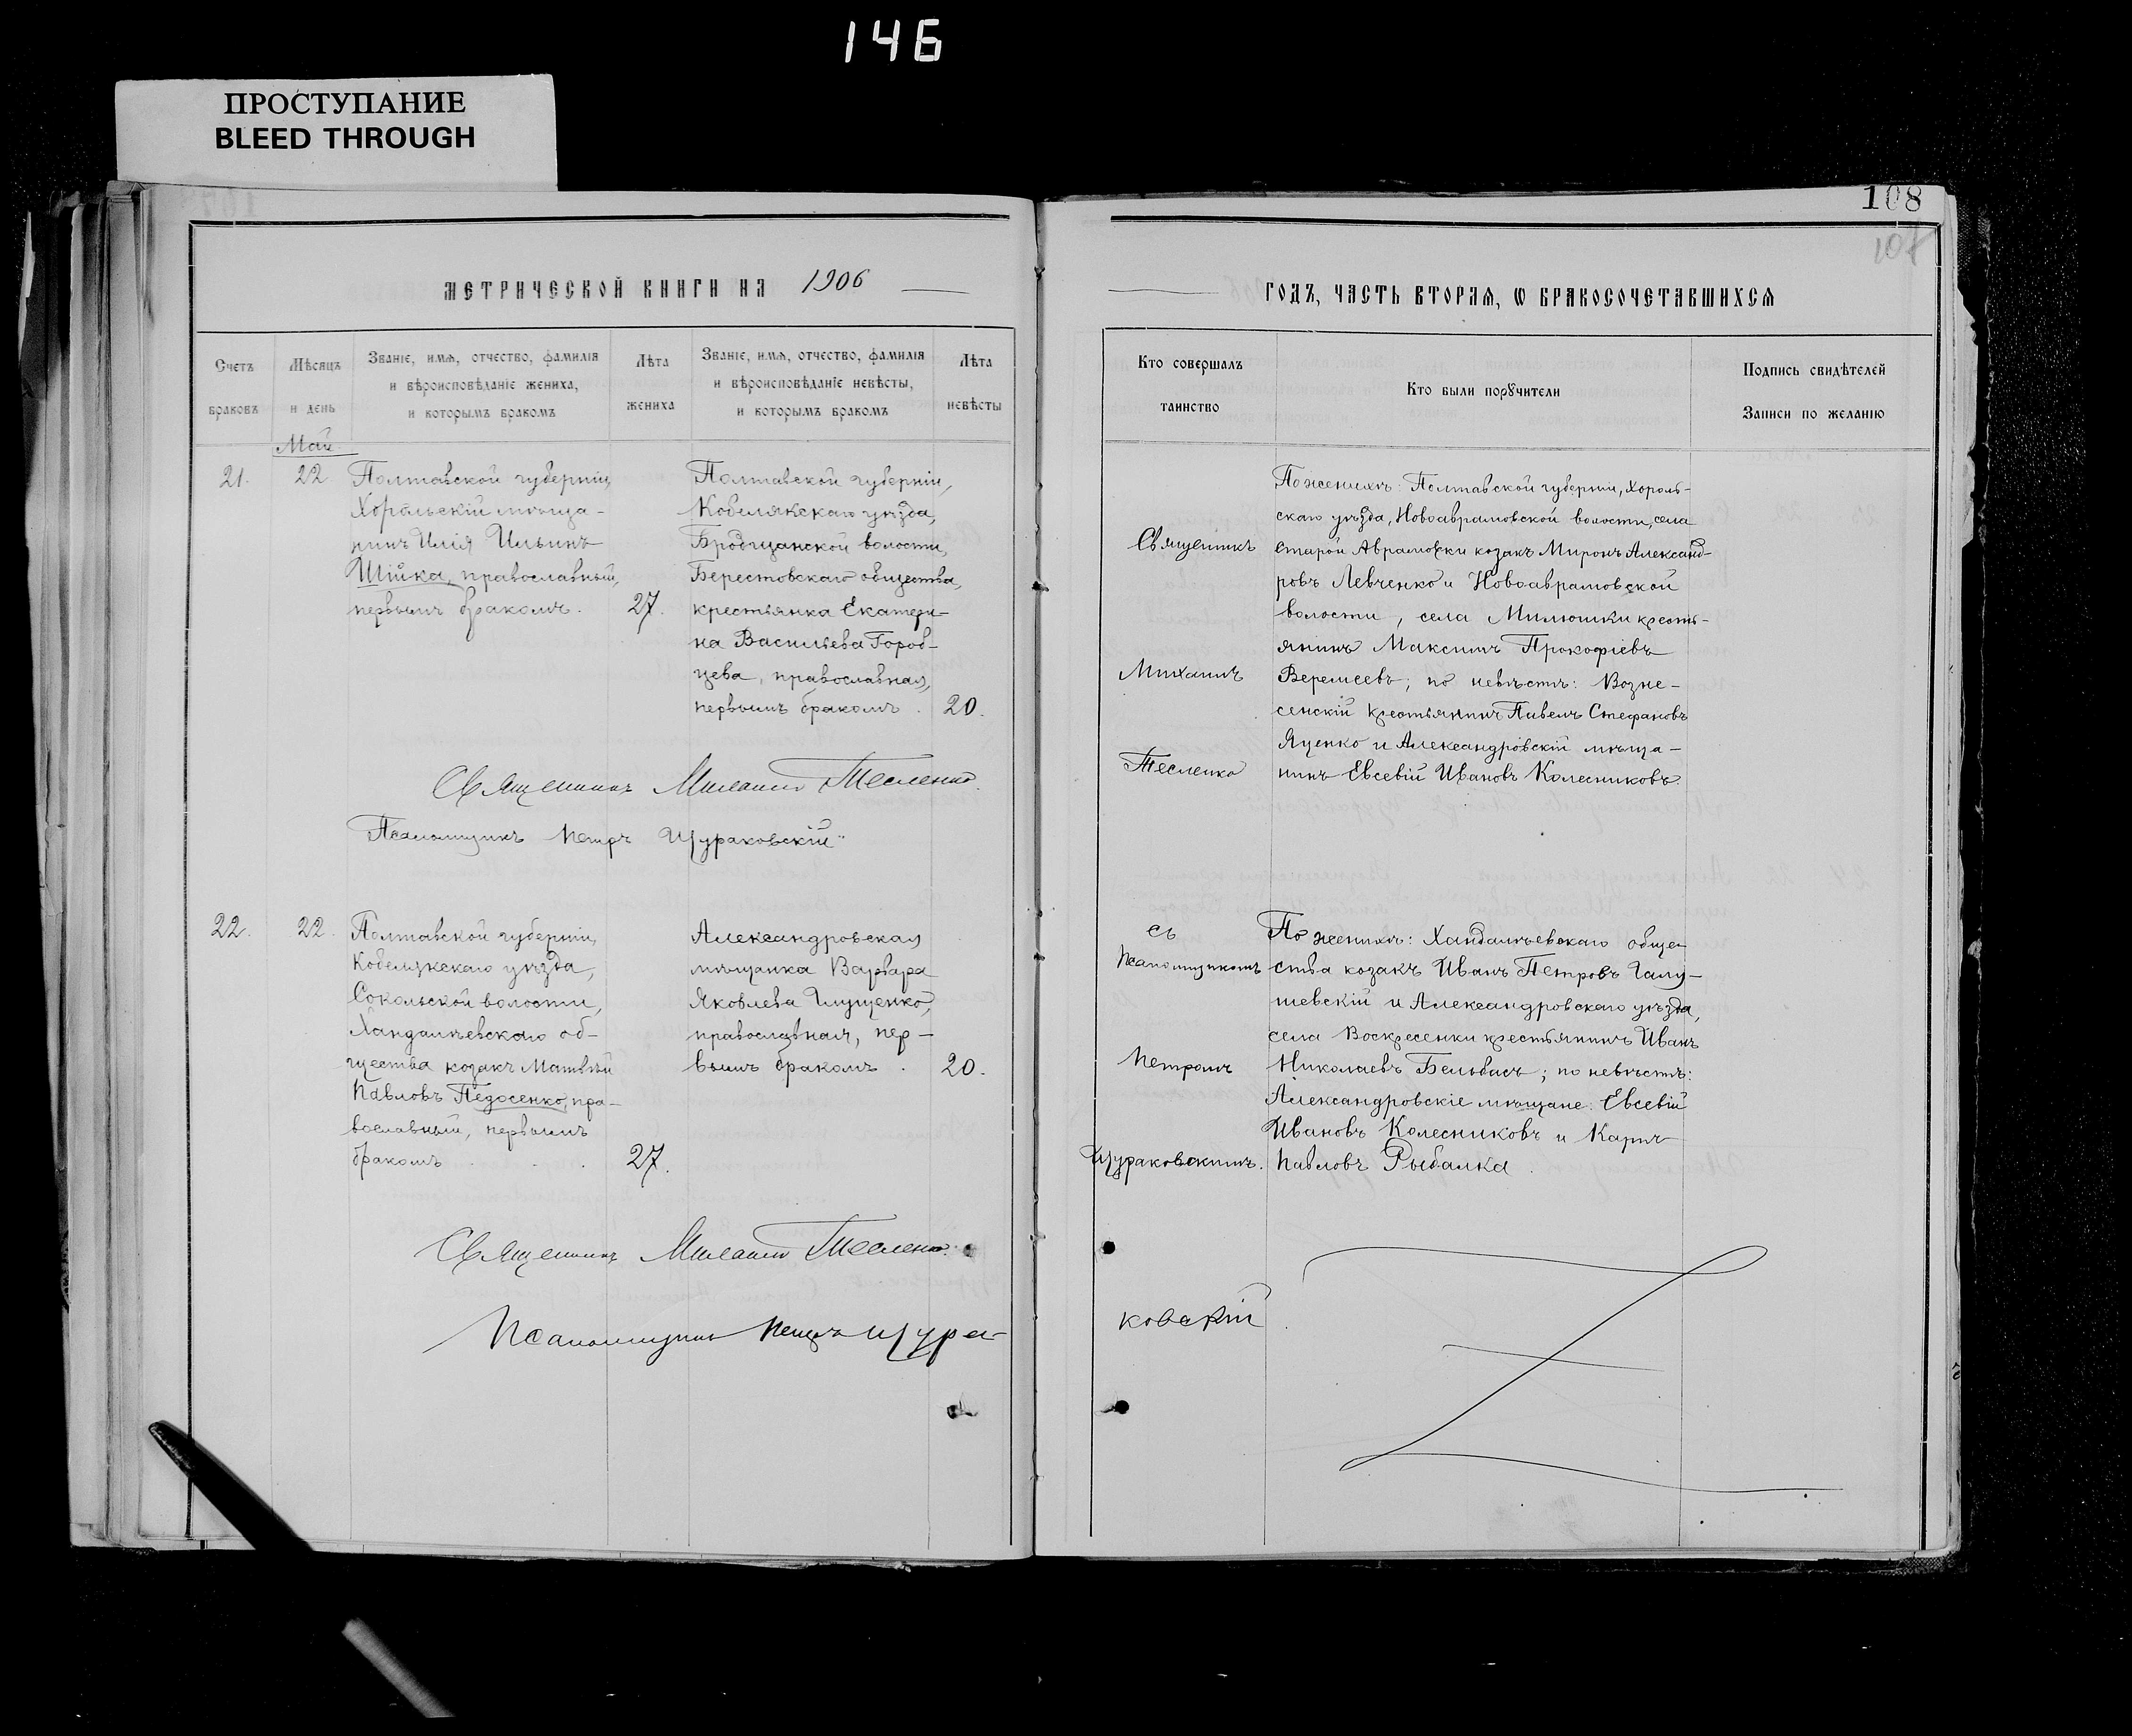 146
ПРОСТУПАНИЕ
BLEED THROUGH
108
МЕТРИЧЕСКОЙ КНИГИ НА 1906
Счетъ браковъ
Мѣсяцъ и день
Званіе, имя, отчество, фамилія
и вѣроисповѣданіе жениха,
и которымъ бракомъ
Лѣта жениха
Званіе, имя, отчество, фамилія
и вѣроисповѣданіе невѣсты,
и которымъ бракомъ
Лѣта невѣсты
Май
21.
22
Полтавской губерніи,
Хорольскій мѣща-
нинъ Илія Ильинъ
Шійка, православный,
первымъ бракомъ.
27.
Полтавской губерніи,
Кобелякскаго уѣзда,
Бродщанской волости,
Берестовскаго общества,
крестьянка Екатери-
на Васильева Горов-
цева, православная,
первымъ бракомъ.
20.
Священникъ Михаилъ Тесленко.
Псаломщикъ Петръ Щураковскій
22.
22
Полтавской губерніи,
Кобелякскаго уѣзда,
Сокольской волости,
Хандалѣевскаго об-
щества козакъ Матвѣй
Павловъ Педосенко, пра-
вославный, первымъ
бракомъ
27.
Александровская
мѣщанка Варвара
Яковлева Глущенко,
православная, пер-
вымъ бракомъ.
20.
Священникъ Михаилъ Тесленко.
Псаломщикъ Петръ Щура-
ГОДЪ, ЧАСТЬ ВТОРАЯ, Ѡ БРАКОСОЧЕТАВШИХСЯ
Кто совершалъ
таинство
Кто были порꙋчители
Подпись свидѣтелей
Записи по желанію
Священникъ
Михаилъ
Тесленко
По женихѣ: Полтавской губерніи, Хороль-
скаго уѣзда, Новоаврамовской волости, села
Старой Аврамовки козакъ Миронъ Александ-
ровъ Левченко и Новоаврамовской
волости, села Милюшки кресть-
янинъ Максимъ Прокофіевъ
Веремеевъ; по невѣстѣ: Возне-
сенскій крестьянинъ Павелъ Стефановъ
Яценко и Александровскій мѣща-
нинъ Евсевій Ивановъ Колесниковъ.
съ
Псаломщикомъ
Петромъ
Щураковскимъ.
По женихѣ: Хандалѣевскаго обще-
ства козакъ Иванъ Петровъ Галу-
шевскій и Александровскаго уѣзда,
села Воскресенки крестьянинъ Иванъ
Николаевъ Бельбасъ; по невѣстѣ:
Александровскіе мѣщане: Евсевій
Ивановъ Колесниковъ и Карпъ
Павловъ Рыбалка.
ковскій